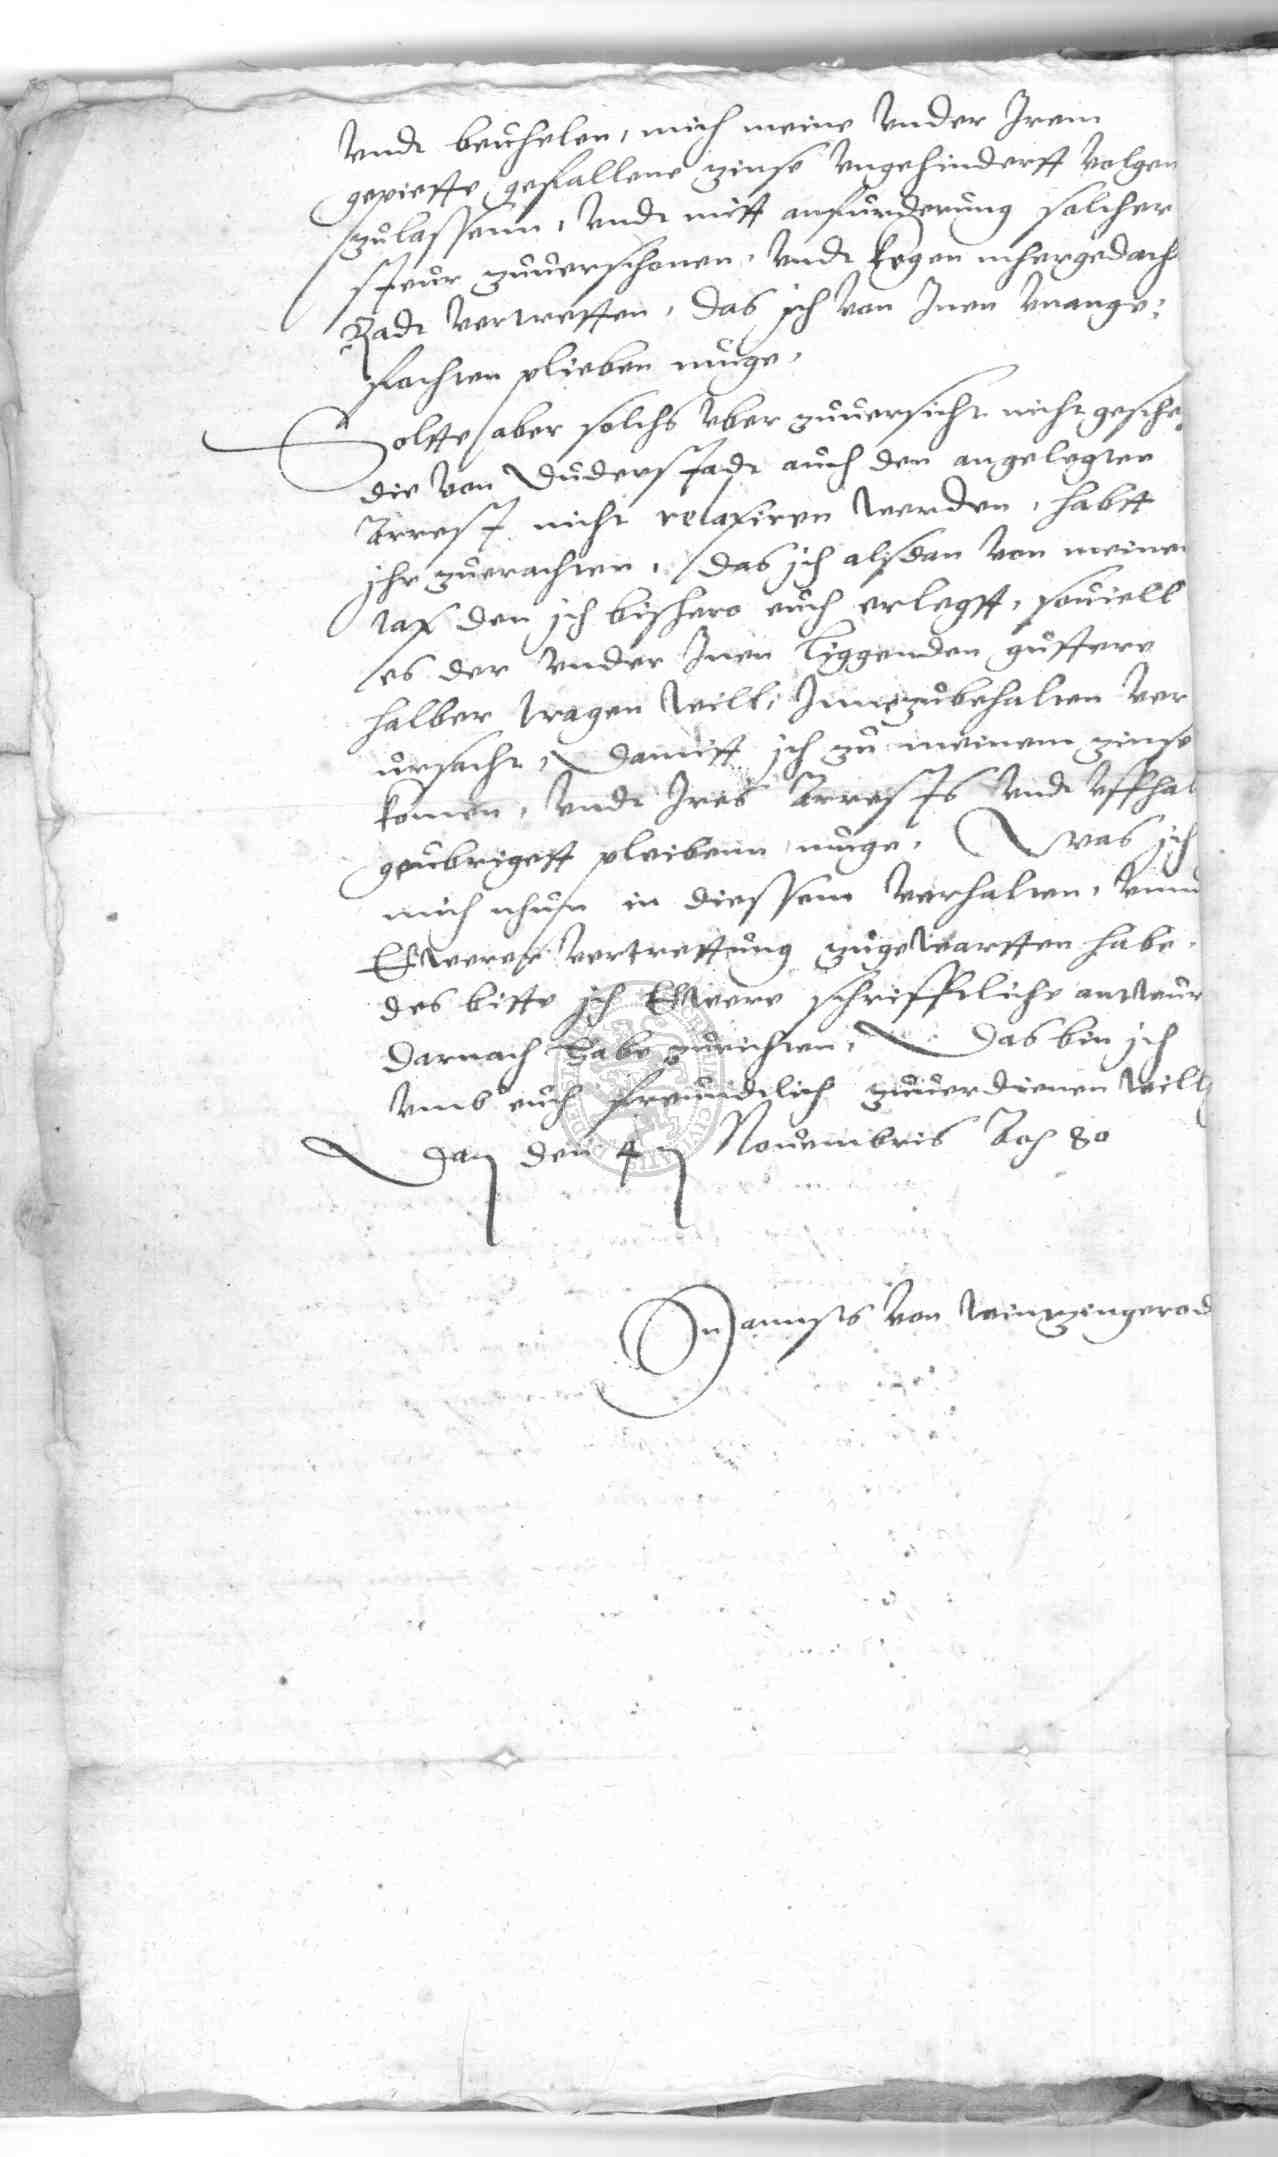 Vndt beuhelen, mich meine Vnder Irem
gepiette gefallene zinse Vngehindertt Volgen
zulassenn, Vndt mitt anfurderung solcher
steur zuuerschonen, Vndt kegen mhergedach
Radt vertretten, das ich von Inen Vnange,
fochten plieben muge,
Soltte aber solchs vber zuuersicht nicht gesche,
die von Duderstadt auch den angelegten
Arrest nicht relaxiren werden, habtt
ihr zuerachten, das ich alsdan von meinem
tax den ich bishero euch erlegtt, souiell
es der vnder Inen liggenden guttere
halber tragen will, Innezubehalten Ver
ursacht, Damitt ich zu meinem zinse
komen, Vndt Ires Arrests Vndt Vffhal
geubrigett pleibenn muge, Was ich
mich nhun in diessem Verhalten, Vnnd
Ewerer vertrettung zugewartten habe,
des bitte ich Ewere schrifftliche antwur
darnach habe zurichten, Das bin ich
vmb euch freundtlich zuuerdienen will
Dat den 4 Nouembris Ao 80
Hanns von Wintzingerod